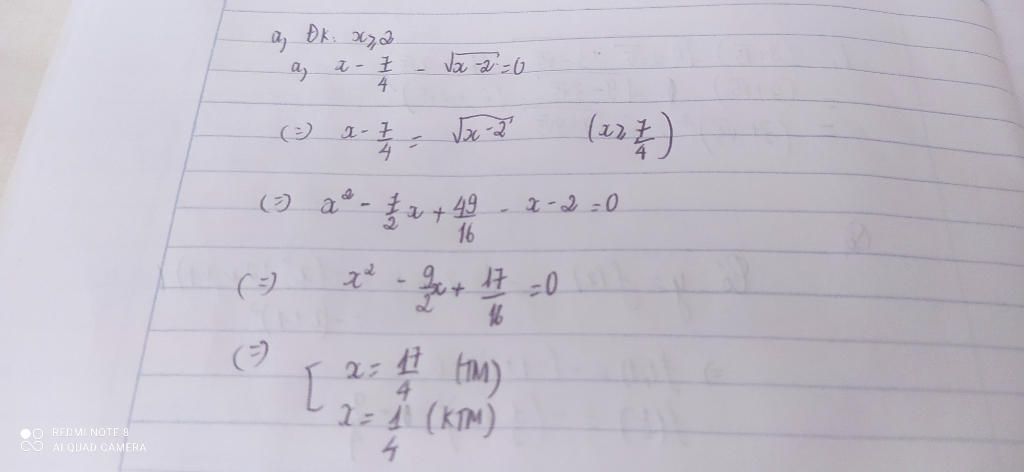 a, ĐK: x ⩾ 2
a, x - 7/4 - √(x-2) = 0
(=) x - 7/4 = √(x-2) (x ⩾ 7/4)
(=) x² - 7/2 x + 49/16 - x - 2 = 0
(=) x² - 9/2 x + 17/16 = 0
(=) [ x = 17/4 (TM)
x = 1/4 (KTM)
REDMI NOTE 8
AI QUAD CAMERA